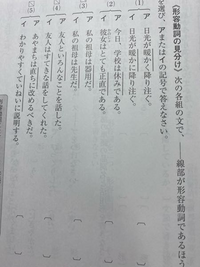 〈形容動詞の見分け〉次の各組の文で、――線部が形容動詞であるほう
を選び、アまたはイの記号で答えなさい。
(1) ア 日光が暖かく降り注ぐ。
イ 日光が暖かに降り注ぐ。
(2) ア 今日、学校は休みである。
イ 彼女はとても正直である。
(3) ア 私の祖母は器用だ。
イ 私の祖母は先生だ。
(4) ア 友人といろんなことを話した。
イ 友人はすてきな話をしてくれた。
(5) ア あやまちは直ちに改めるべきだ。
イ わかりやすくていねいに説明する。
〔 〕
〔 〕
〔 〕
〔 〕
〔 〕